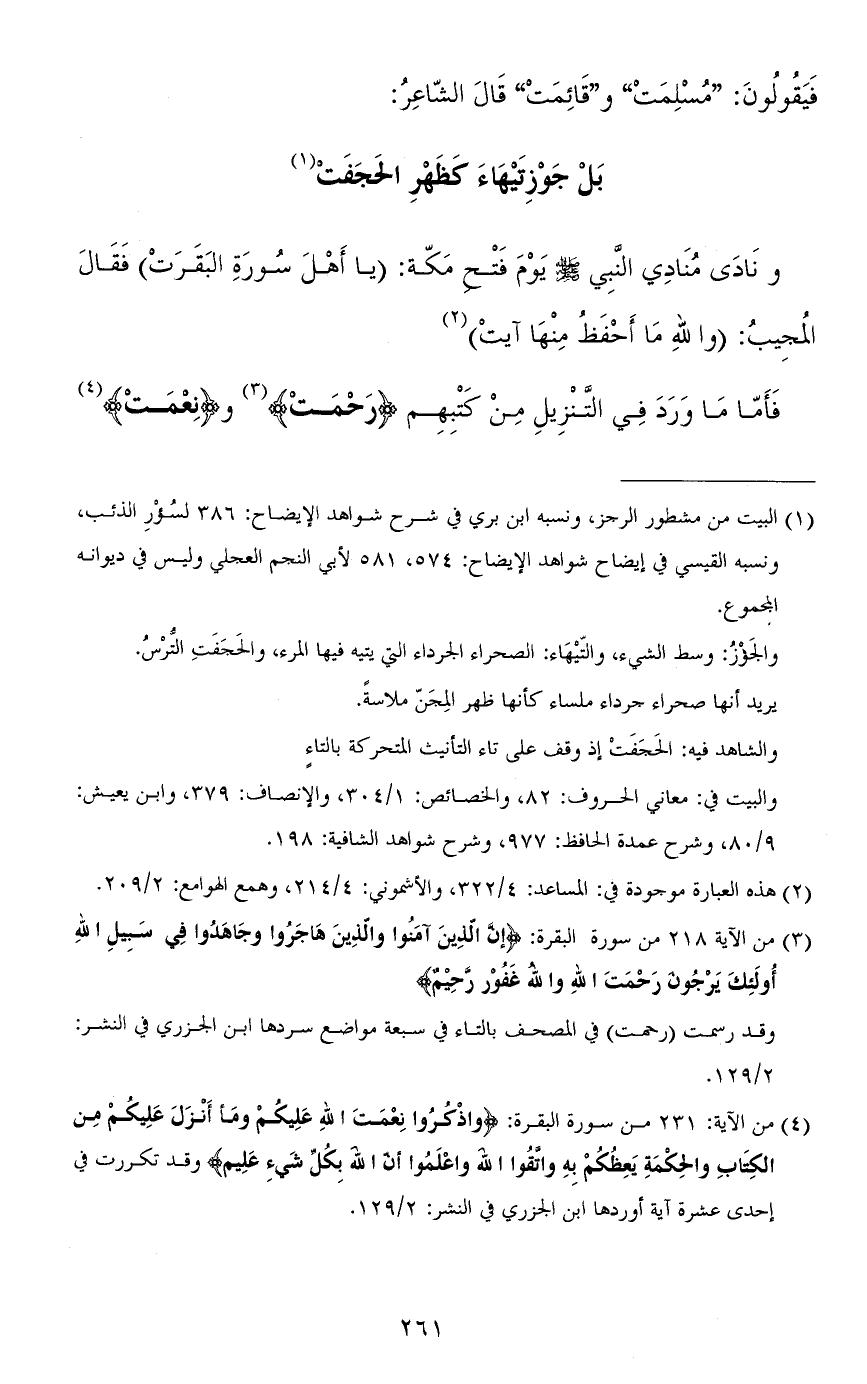 فَيَقُولُونَ: ”مُسْلِمَتْ“ و”قَائِمَتْ“ قَالَ الشّاعِرُ:
بَلْ جَوْزِتَيْهَاءَ كَظَهْرِ الحَجَفَتْ(١)
و نَادَى مُنَادِي النَّبِي ﷺ يَوْمَ فَتْحِ مَكّة: (يـا أَهْـلَ سُـورَةِ البَقَـرَتْ) فَقَـالَ
المُجِيبُ: (واللهِ مَا أَحْفَظُ مِنْهَا آيتْ)(٢)
فَأَمّـا مَـا وَرَدَ فِـي التَّـنْزِيلِ مِـنْ كَتْبِهِـم ﴿رَحْمَـتْ﴾(٣) و﴿نِعْمَـتْ﴾(٤)
(١) البيت من مشطور الرجز، ونسبه ابن بري في شـرح شـواهد الإيضـاح: ٣٨٦ لسُـؤْرِ الذئـب،
ونسبه القيسي في إيضاح شواهد الإيضاح: ٥٧٤، ٥٨١ لأبي النجم العجلي وليس في ديوانـه
المجموع.
والجَوْزُ: وسط الشيء، والتّيْهَاء: الصحراء الجرداء التي يتيه فيها المرء، والحَجَفَتِ التُّرْسُ.
يريد أنها صحراء جرداء ملساء كأنها ظهر المِجَنّ ملاسةً.
والشاهد فيه: الحَجَفَتْ إذ وقف على تاء التأنيث المتحركة بالتاءٍ
والبيت في: معاني الحـروف: ٨٢، والخصـائص: ٣٠٤/١، والإنصـاف: ٣٧٩، وابـن يعيـش:
٨٠/٩، وشرح عمدة الحافظ: ٩٧٧، وشرح شواهد الشافية: ١٩٨.
(٢) هذه العبارة موجودة في: المساعد: ٣٢٢/٤، والأشموني: ٢١٤/٤، وهمع الهوامع: ٢٠٩/٢.
(٣) من الآية ٢١٨ من سورة البقرة: ﴿إنَّ الّذينَ آمَنُوا والّذينَ هَاجَرُوا وجَاهَدُوا فِي سَبِيلِ اللهِ
أُولَئِكَ يَرْجُونَ رَحْمَتَ اللهِ واللهُ غَفُوْر رَّحِيْمٌ﴾
وقـد رسمـت (رحمـت) في المصحـف بالتـاء في سـبعة مواضـع سـردها ابـن الجـزري في النشـر:
١٢٩/٢.
(٤) من الآية: ٢٣١ مـن سـورة البقـرة: ﴿واذْكُـرُوا نِعْمَـتَ اللهِ عَلَيكُـمْ ومَـأ أَنْـزَلَ عَلَيكُـمْ مِـن
الكِتَابِ والحِكْمَةِ يَعِظُكُمْ بِهِ واتَّقُوا اللهَ واعْلَمُوا أنّ اللهَ بِكُلِّ شَيءٍ عَلِيم﴾ وقـد تكـررت في
إحدى عشرة آية أوردها ابن الجزري في النشر: ١٢٩/٢.
٢٦١